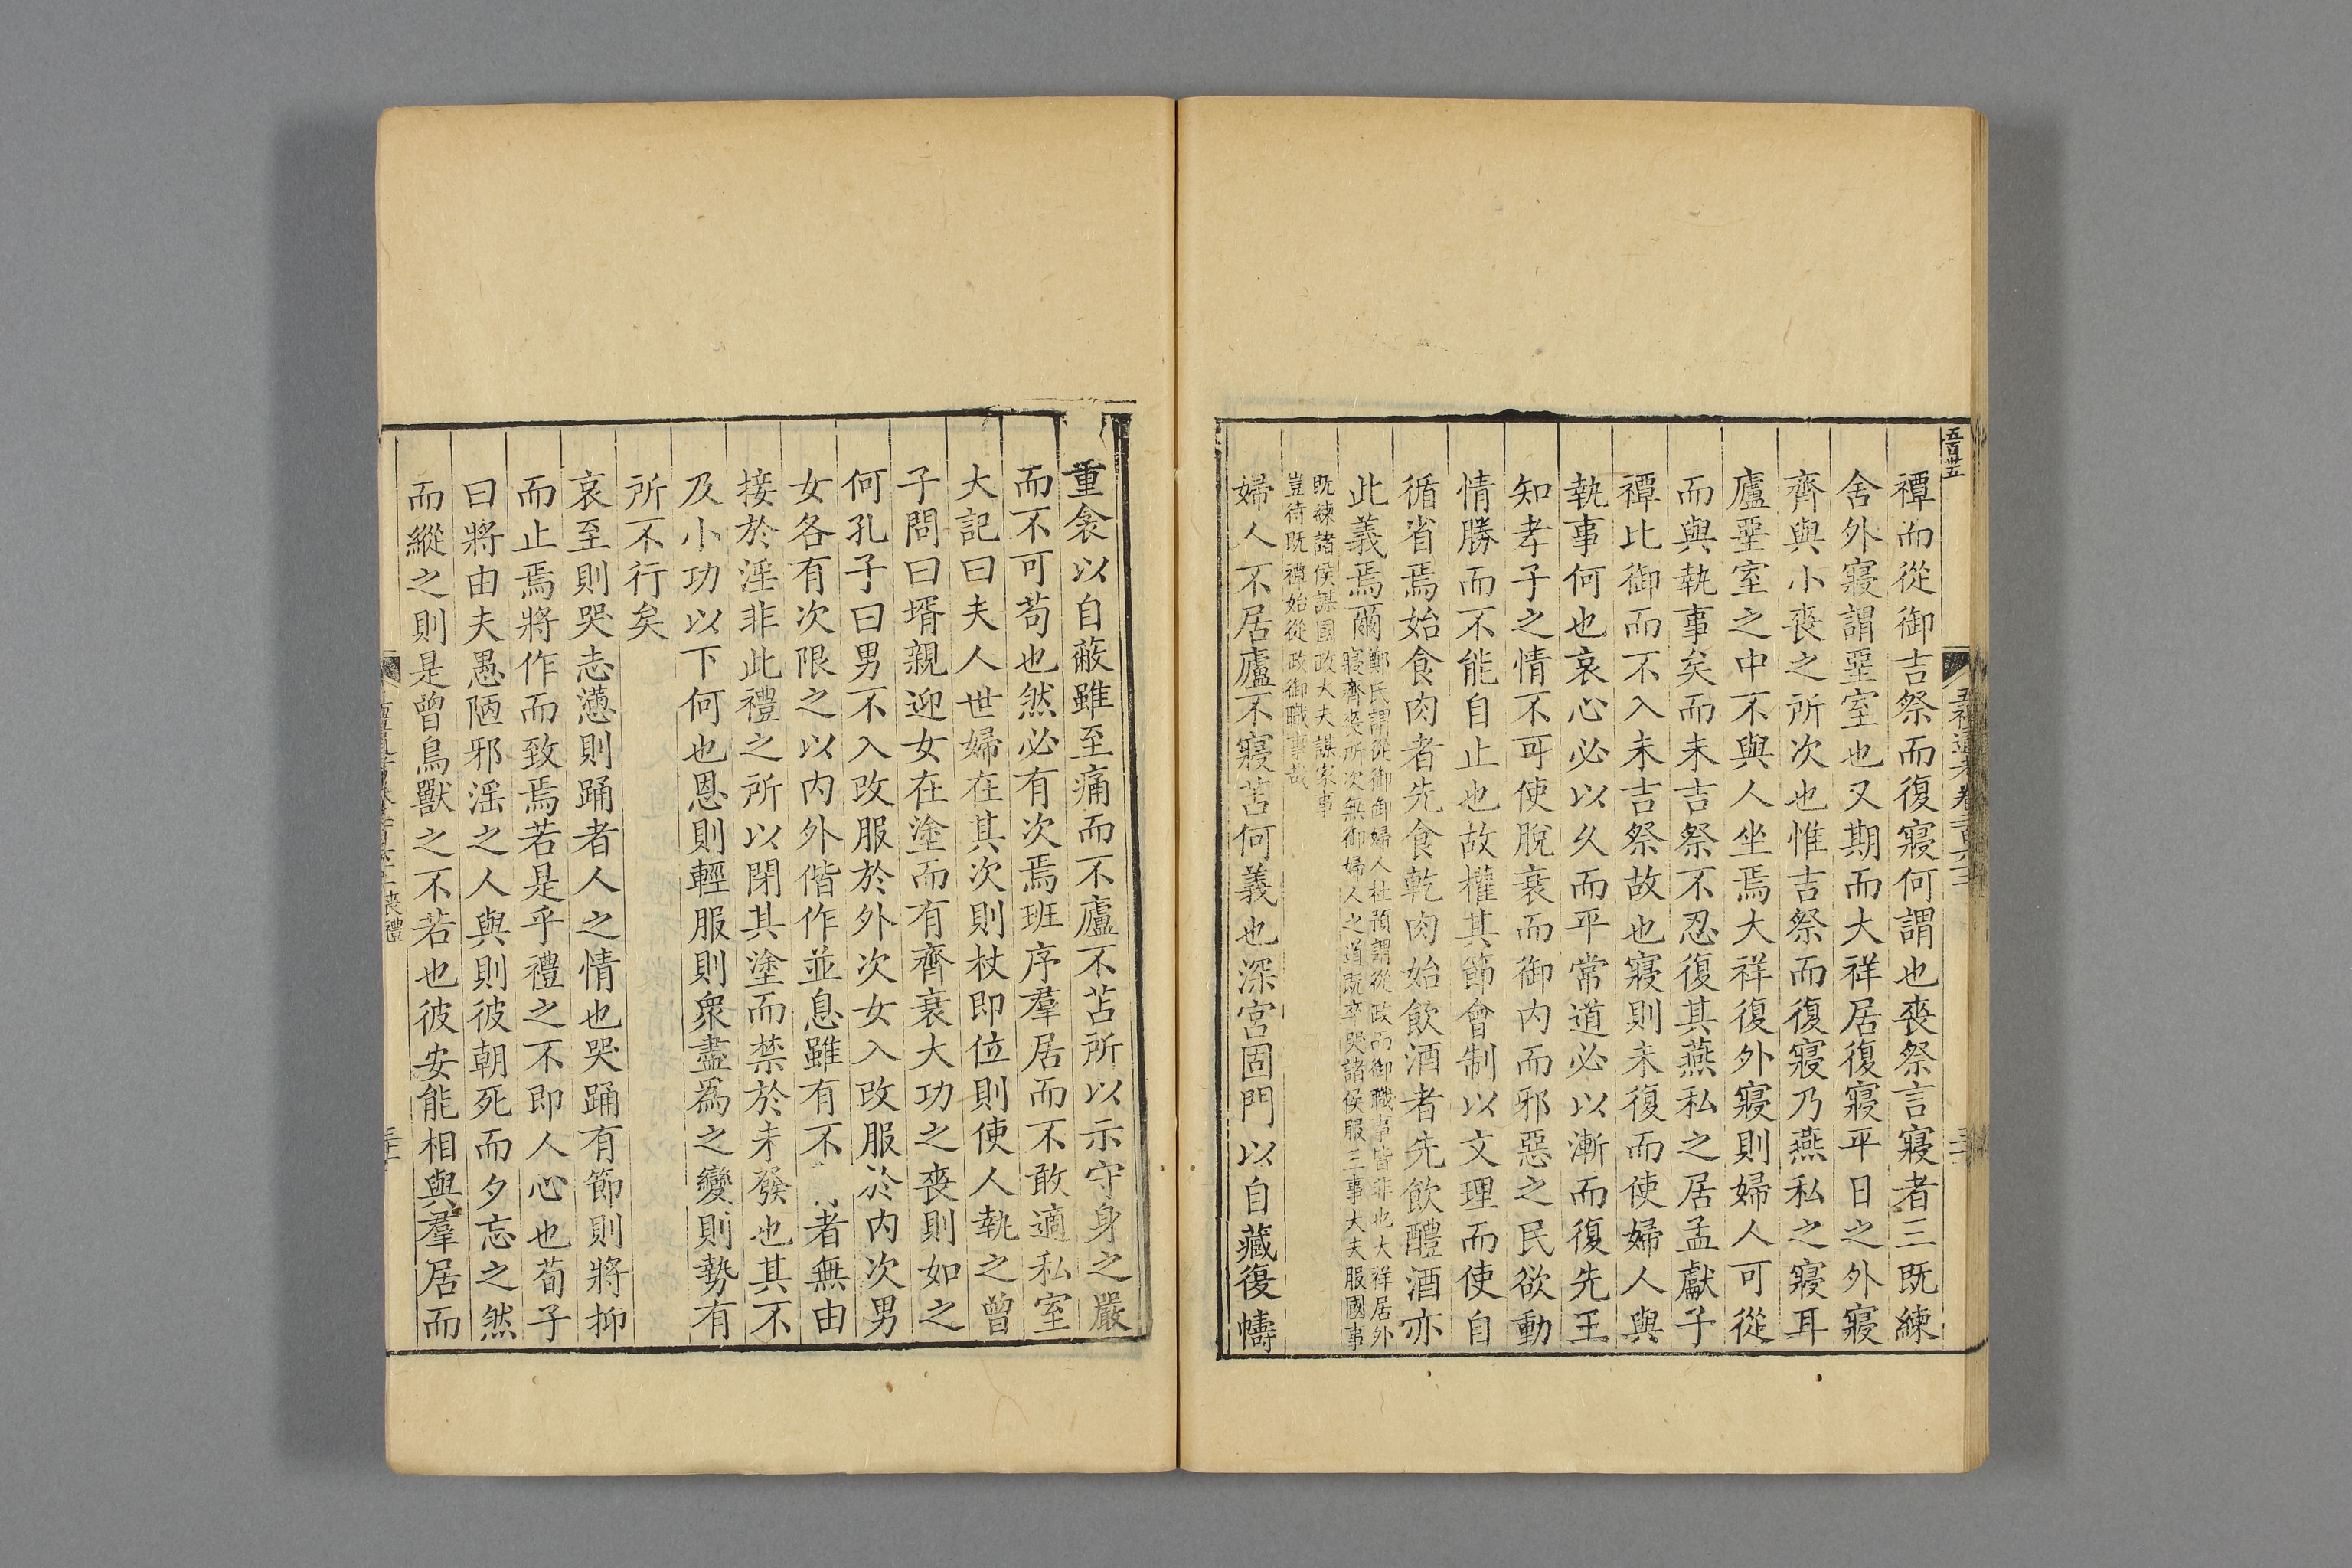 五百卅五
禫而從御吉祭而復寢何謂也喪祭言寢者三既練
舍外寢謂堊室也又期而大祥居復寢平日之外寢
齊與小喪之所次也惟吉祭而復寢乃燕私之寢耳
廬堊室之中不與人坐焉大祥復外寢則婦人可從
而與執事矣而未吉祭不忍復其燕私之居孟獻子
禫比御而不入未吉祭故也寢則未復而使婦人與
執事何也哀心必以久而平常道必以漸而復先王
知孝子之情不可使脫衰而御內而邪惡之民欲動
情勝而不能自止也故權其節會制以文理而使自
循省焉始食肉者先食乾肉始飲酒者先飲醴酒亦
此義焉爾
鄭氏謂從御御婦人杜預謂從政而御職事皆非也大祥居外
寢齊喪所次無御婦人之道既卒哭諸侯服王事大夫服國事
既練諸侯謀國政大夫謀家事
豈待既禫始從政御職事哉
婦人不居廬不寢苫何義也深宮固門以自藏復幬
重衾以自蔽雖至痛而不廬不苫所以示守身之嚴
而不可苟也然必有次焉班序羣居而不敢適私室
大記曰夫人世婦在其次則杖即位則使人執之曾
子問曰壻親迎女在塗而有齊衰大功之喪則如之
何孔子曰男不入改服於外次女入改服於內次男
女各有次限之以內外偕作並息雖有不者無由
接於淫非此禮之所以閉其塗而禁於未發也其不
及小功以下何也恩則輕服則衆盡爲之變則勢有
所不行矣
哀至則哭志懣則踊者人之情也哭踊有節則將抑
而止焉將作而致焉若是乎禮之不即人心也荀子
曰將由夫愚陋邪淫之人與則彼朝死而夕忘之然
而縱之則是曾鳥獸之不若也彼安能相與羣居而
喪禮